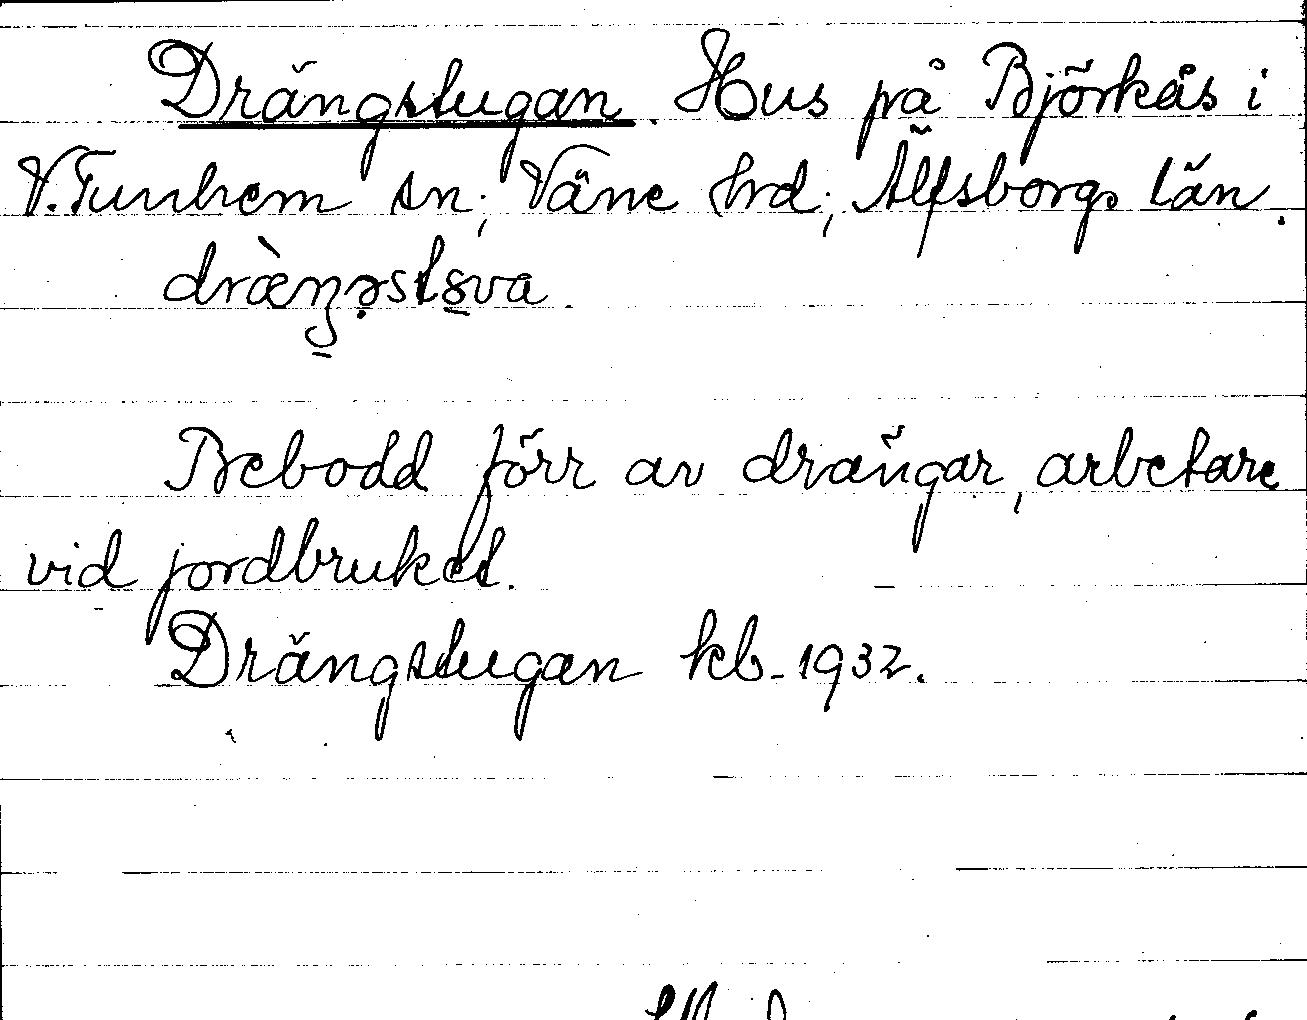 Drängstugan. Hus på Björkås i
V. Tunhem sn; Väne hrd; Älfsborgs län.
Bebodd förr av drängar, arbetare
vid jordbruket.
Drängstugan kb. 1932.